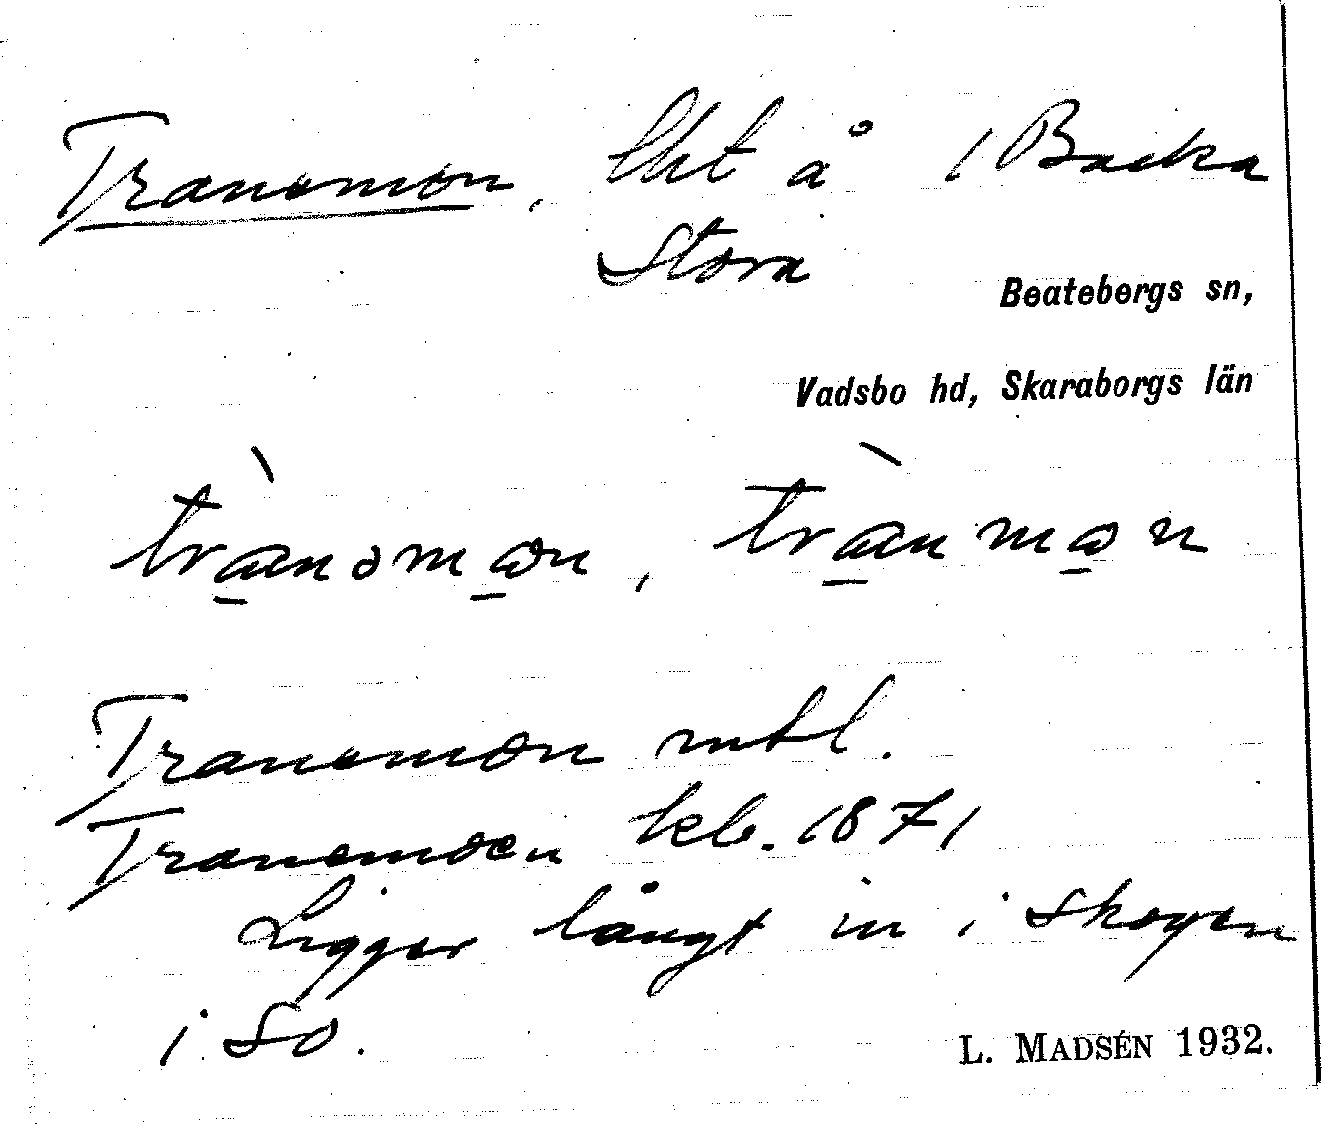 Tranemon, lht å 1 Backa
Stora
Beatebergs sn,
Vadsbo hd, Skaraborgs län
trànəmɷn, trànmɷn
Tranemon mtl.
Tranemoen keb. 1871
Ligger långt in i skogen
i so.
L. MADSÉN 1932.